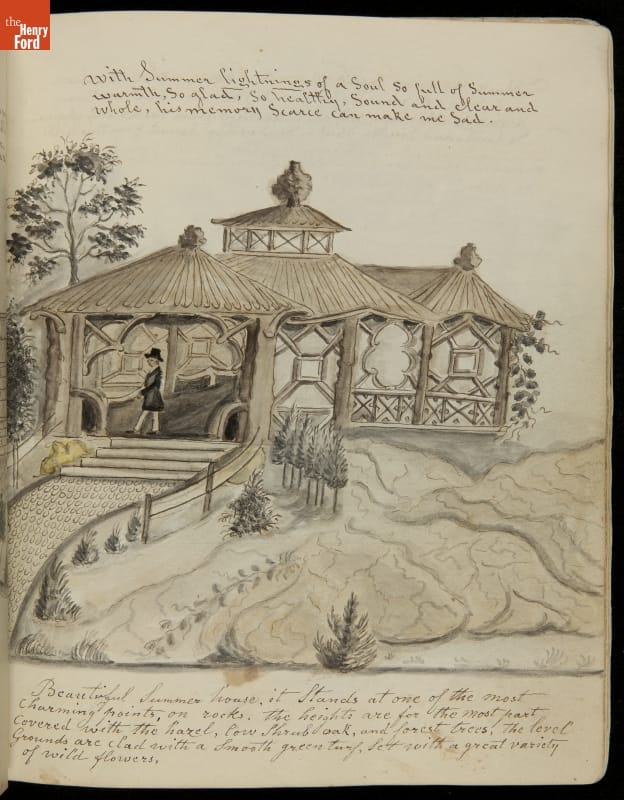 the
Henry
Ford
With Summer lightnings of a Soul So full of Summer
warmth, So glad, So healthy, Sound and clear and
whole, his memory Scarce can make me Sad.
Beautiful Summer house, it Stands at one of the most
Charming points, on rocks. the heights are for the most part
Covered with the hazel, low Shrub oak, and forest trees, the level
Grounds are clad with a Smooth green turf, Set with a great variety
of wild flowers,